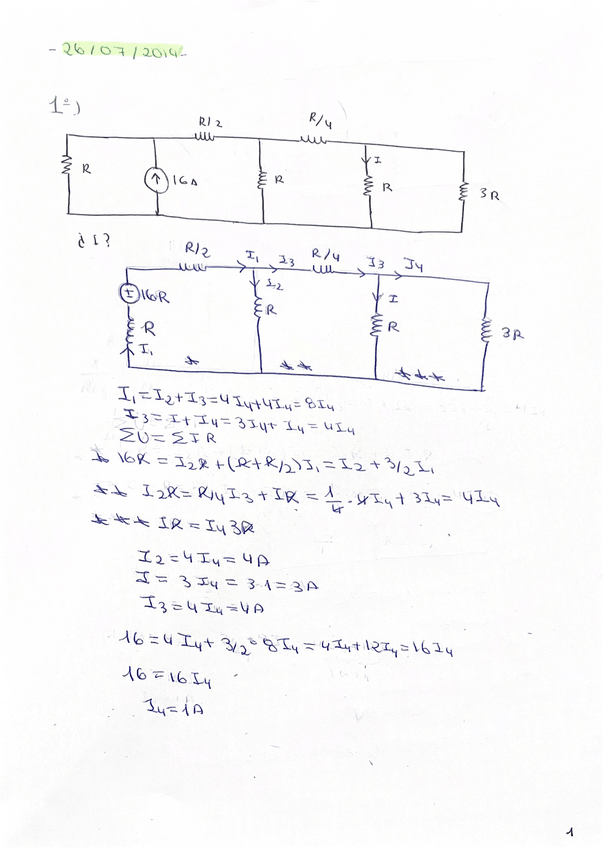 - 26/07/2014-
1º)
R/2 R/4
R 16A R I R 3R
¿I?
R/2 I₁ I₃ R/4 I₃ I₄
16R I₂ I
R R R 3R
I₁ * ** ***
I₁=I₂+I₃=4I₄+4I₄=8I₄
I₃=I+I₄=3I₄+I₄=4I₄
ΣU=ΣIR
* 16R=I₂R+(R+R/2)I₁=I₂+3/2I₁
** I₂R=R/4I₃+IR=1/4·4I₄+3I₄=4I₄
*** IR=I₄3R
I₂=4I₄=4A
I=3I₄=3·1=3A
I₃=4I₄=4A
16=4I₄+3/2·8I₄=4I₄+12I₄=16I₄
16=16I₄
I₄=1A
1